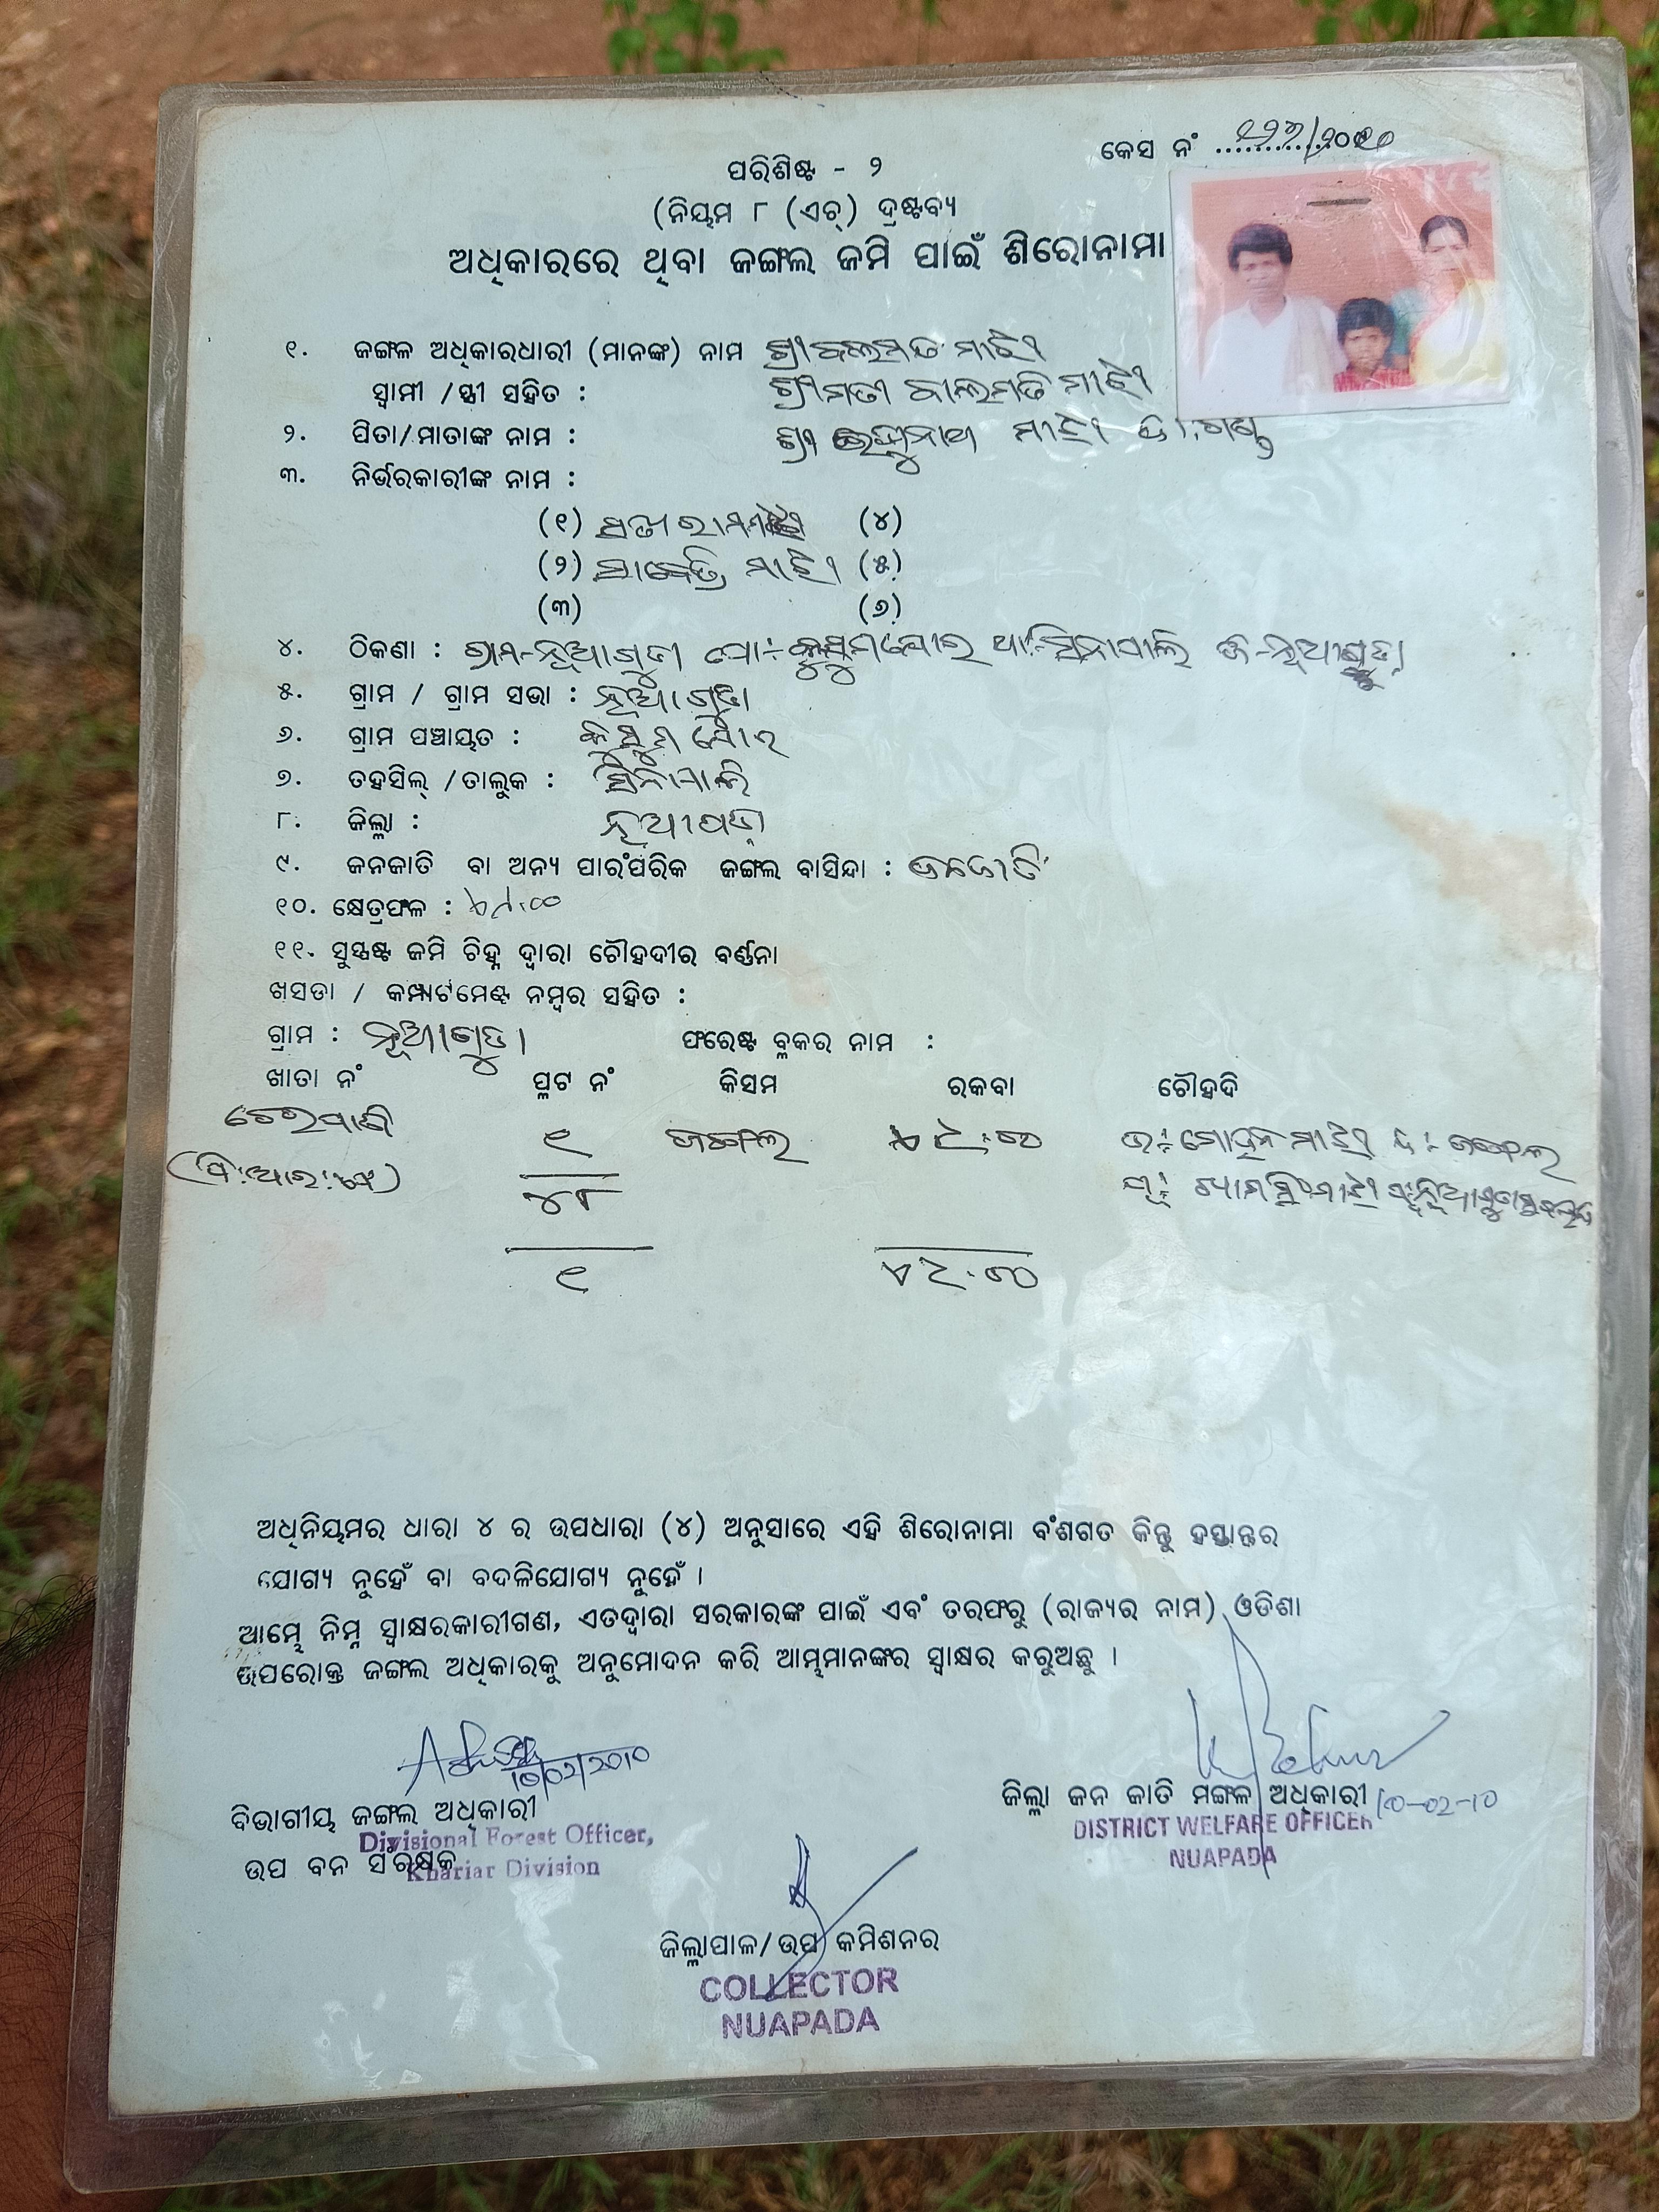 କେସ ନଂ ............
ପରିଶିଷ୍ଟ - ୨
(ନିୟମ ୮ (ଏଚ୍) ଦ୍ରଷ୍ଟବ୍ୟ
ଅଧିକାରରେ ଥିବା ଜଙ୍ଗଲ ଜମି ପାଇଁ ଶିରୋନାମା
୧. ଜଙ୍ଗଲ ଅଧିକାରଧାରୀ (ମାନଙ୍କ) ନାମ ଶ୍ରୀ ବଲମତ ମାଝି
ସ୍ୱାମୀ /ସ୍ତ୍ରୀ ସହିତ : ଶ୍ରୀମତୀ ବାଲମତି ମାଝି
୨. ପିତା/ମାତାଙ୍କ ନାମ : ଶ୍ରୀ ମାଝି
୩. ନିର୍ଭରକାରୀଙ୍କ ନାମ :
(୧) (୪)
(୨) ସାବେତ୍ରି ମାଝି (୫)
(୩) (୬)
୪. ଠିକଣା : ଗ୍ରାମ-ନୂଆଗୁଡା ପୋ: ଥା: ସିନାପାଲି ଜି-ନୂଆପଡା
୫. ଗ୍ରାମ / ଗ୍ରାମ ସଭା : ନୂଆଗୁଡା
୬. ଗ୍ରାମ ପଞ୍ଚାୟତ :
୭. ତହସିଲ୍ /ତାଲୁକ : ସିନାପାଲି
୮. ଜିଲ୍ଲା : ନୂଆପଡା
୯. ଜନଜାତି ବା ଅନ୍ୟ ପାରଂପରିକ ଜଙ୍ଗଲ ବାସିନ୍ଦା : ଜନଜାତି
୧୦. କ୍ଷେତ୍ରଫଳ :
୧୧. ସୁସ୍ପଷ୍ଟ ଜମି ଚିହ୍ନ ଦ୍ୱାରା ଚୌହଦୀର ବର୍ଣ୍ଣନା
ଖସଡା / କମ୍ପାର୍ଟମେଣ୍ଟ ନମ୍ବର ସହିତ :
ଗ୍ରାମ : ନୂଆଗୁଡା ଫରେଷ୍ଟ ବ୍ଲକର ନାମ :
ଖାତା ନଂ ପ୍ଳଟ ନଂ କିସମ ରକବା ଚୌହଦି
୧ ଜଙ୍ଗଲ ଉ: ମୋହନ ମାଝି ଦ: ଜଙ୍ଗଲ
(ପି.ଆର.ଏଫ)
୪୮
୧
ଅଧିନିୟମର ଧାରା ୪ ର ଉପଧାରା (୪) ଅନୁସାରେ ଏହି ଶିରୋନାମା ବଂଶଗତ କିନ୍ତୁ ହସ୍ତାନ୍ତର
ଯୋଗ୍ୟ ନୁହେଁ ବା ବଦଳିଯୋଗ୍ୟ ନୁହେଁ ।
ଆମ୍ଭେ ନିମ୍ନ ସ୍ୱାକ୍ଷରକାରୀଗଣ, ଏତଦ୍ୱାରା ସରକାରଙ୍କ ପାଇଁ ଏବଂ ତରଫରୁ (ରାଜ୍ୟର ନାମ) ଓଡିଶା
ଉପରୋକ୍ତ ଜଙ୍ଗଲ ଅଧିକାରକୁ ଅନୁମୋଦନ କରି ଆମ୍ଭମାନଙ୍କର ସ୍ୱାକ୍ଷର କରୁଅଛୁ ।
10/02/2010
ବିଭାଗୀୟ ଜଙ୍ଗଲ ଅଧିକାରୀ
Divisional Forest Officer,
ଉପ ବନ ସଂରକ୍ଷକ
Khariar Division
ଜିଲ୍ଲା ଜନ ଜାତି ମଙ୍ଗଳ ଅଧିକାରୀ 10-02-10
DISTRICT WELFARE OFFICER
NUAPADA
ଜିଲ୍ଲାପାଳ/ଉପ କମିଶନର
COLLECTOR
NUAPADA